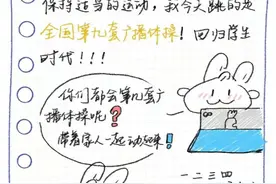 保持适当的运动，我今天跳的是
全国第九套广播体操！回归学生
时代！！！
你们都会第九套广
播体操呢？
带着家人一起动起来！
一二三四